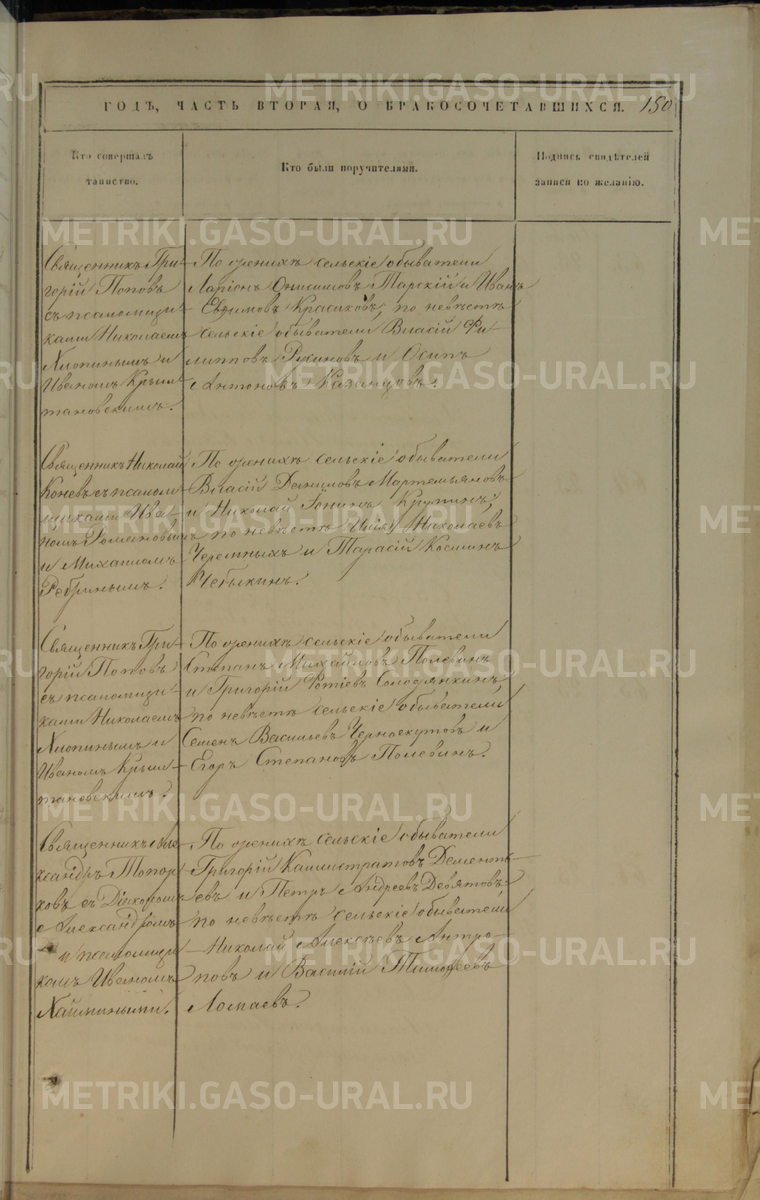 ГОДЪ, ЧАСТЬ ВТОРАЯ, О БРАКОСОЧЕТАВШИХСЯ. 150
Кто совершалъ
таинство.
Кто были поручителями.
Подпись свидѣтелей
записи по желанію.
Священникъ Гри-
горій Поповъ
съ псаломщи-
ками Николаемъ
Хлопинымъ и
Иваномъ Крыш-
тановскимъ.
По женихѣ сельскіе обыватели
Ларіонъ Онисимовъ Тарскій и Иванъ
Евфимовъ Красиковъ, по невѣстѣ
сельскіе обыватели Власій Фи-
липповъ и Осипъ
Антоновъ Казанцовъ.
Священникъ Николай
Коневъ съ псалом-
щиками Ива-
номъ Романовымъ
и Михаиломъ
Ребринымъ.
По женихѣ сельскіе обыватели
Власій Мартемьяновъ
и Николай Іонинъ Крупинъ,
по невѣстѣ Николаевъ
Черемныхъ и Тарасій Косминъ
Чебыкинъ.
Священникъ Гри-
горій Поповъ
съ псаломщи-
ками Николаемъ
Хлопинымъ и
Иваномъ Крыш-
тановскимъ.
По женихѣ сельскіе обыватели
Степанъ Михайловъ Полевинъ
и Григорій Фотіевъ Солодянкинъ,
по невѣстѣ сельскіе обыватели
Семенъ Васильевъ Черноскутовъ и
Егоръ Степановъ Полевинъ.
Священникъ Але-
ксандръ Топор-
ковъ съ Діакономъ
Александромъ
и псаломщи-
комъ Иваномъ
По женихѣ сельскіе обыватели
Григорій Каллистратовъ Дементь-
евъ и Петръ Андреевъ Девятовъ,
по невѣстѣ сельскіе обыватели
Николай Алексѣевъ Антро-
повъ и Василій Тимофеевъ
Лоспаевъ.
METRIKI.GASO-URAL.RU